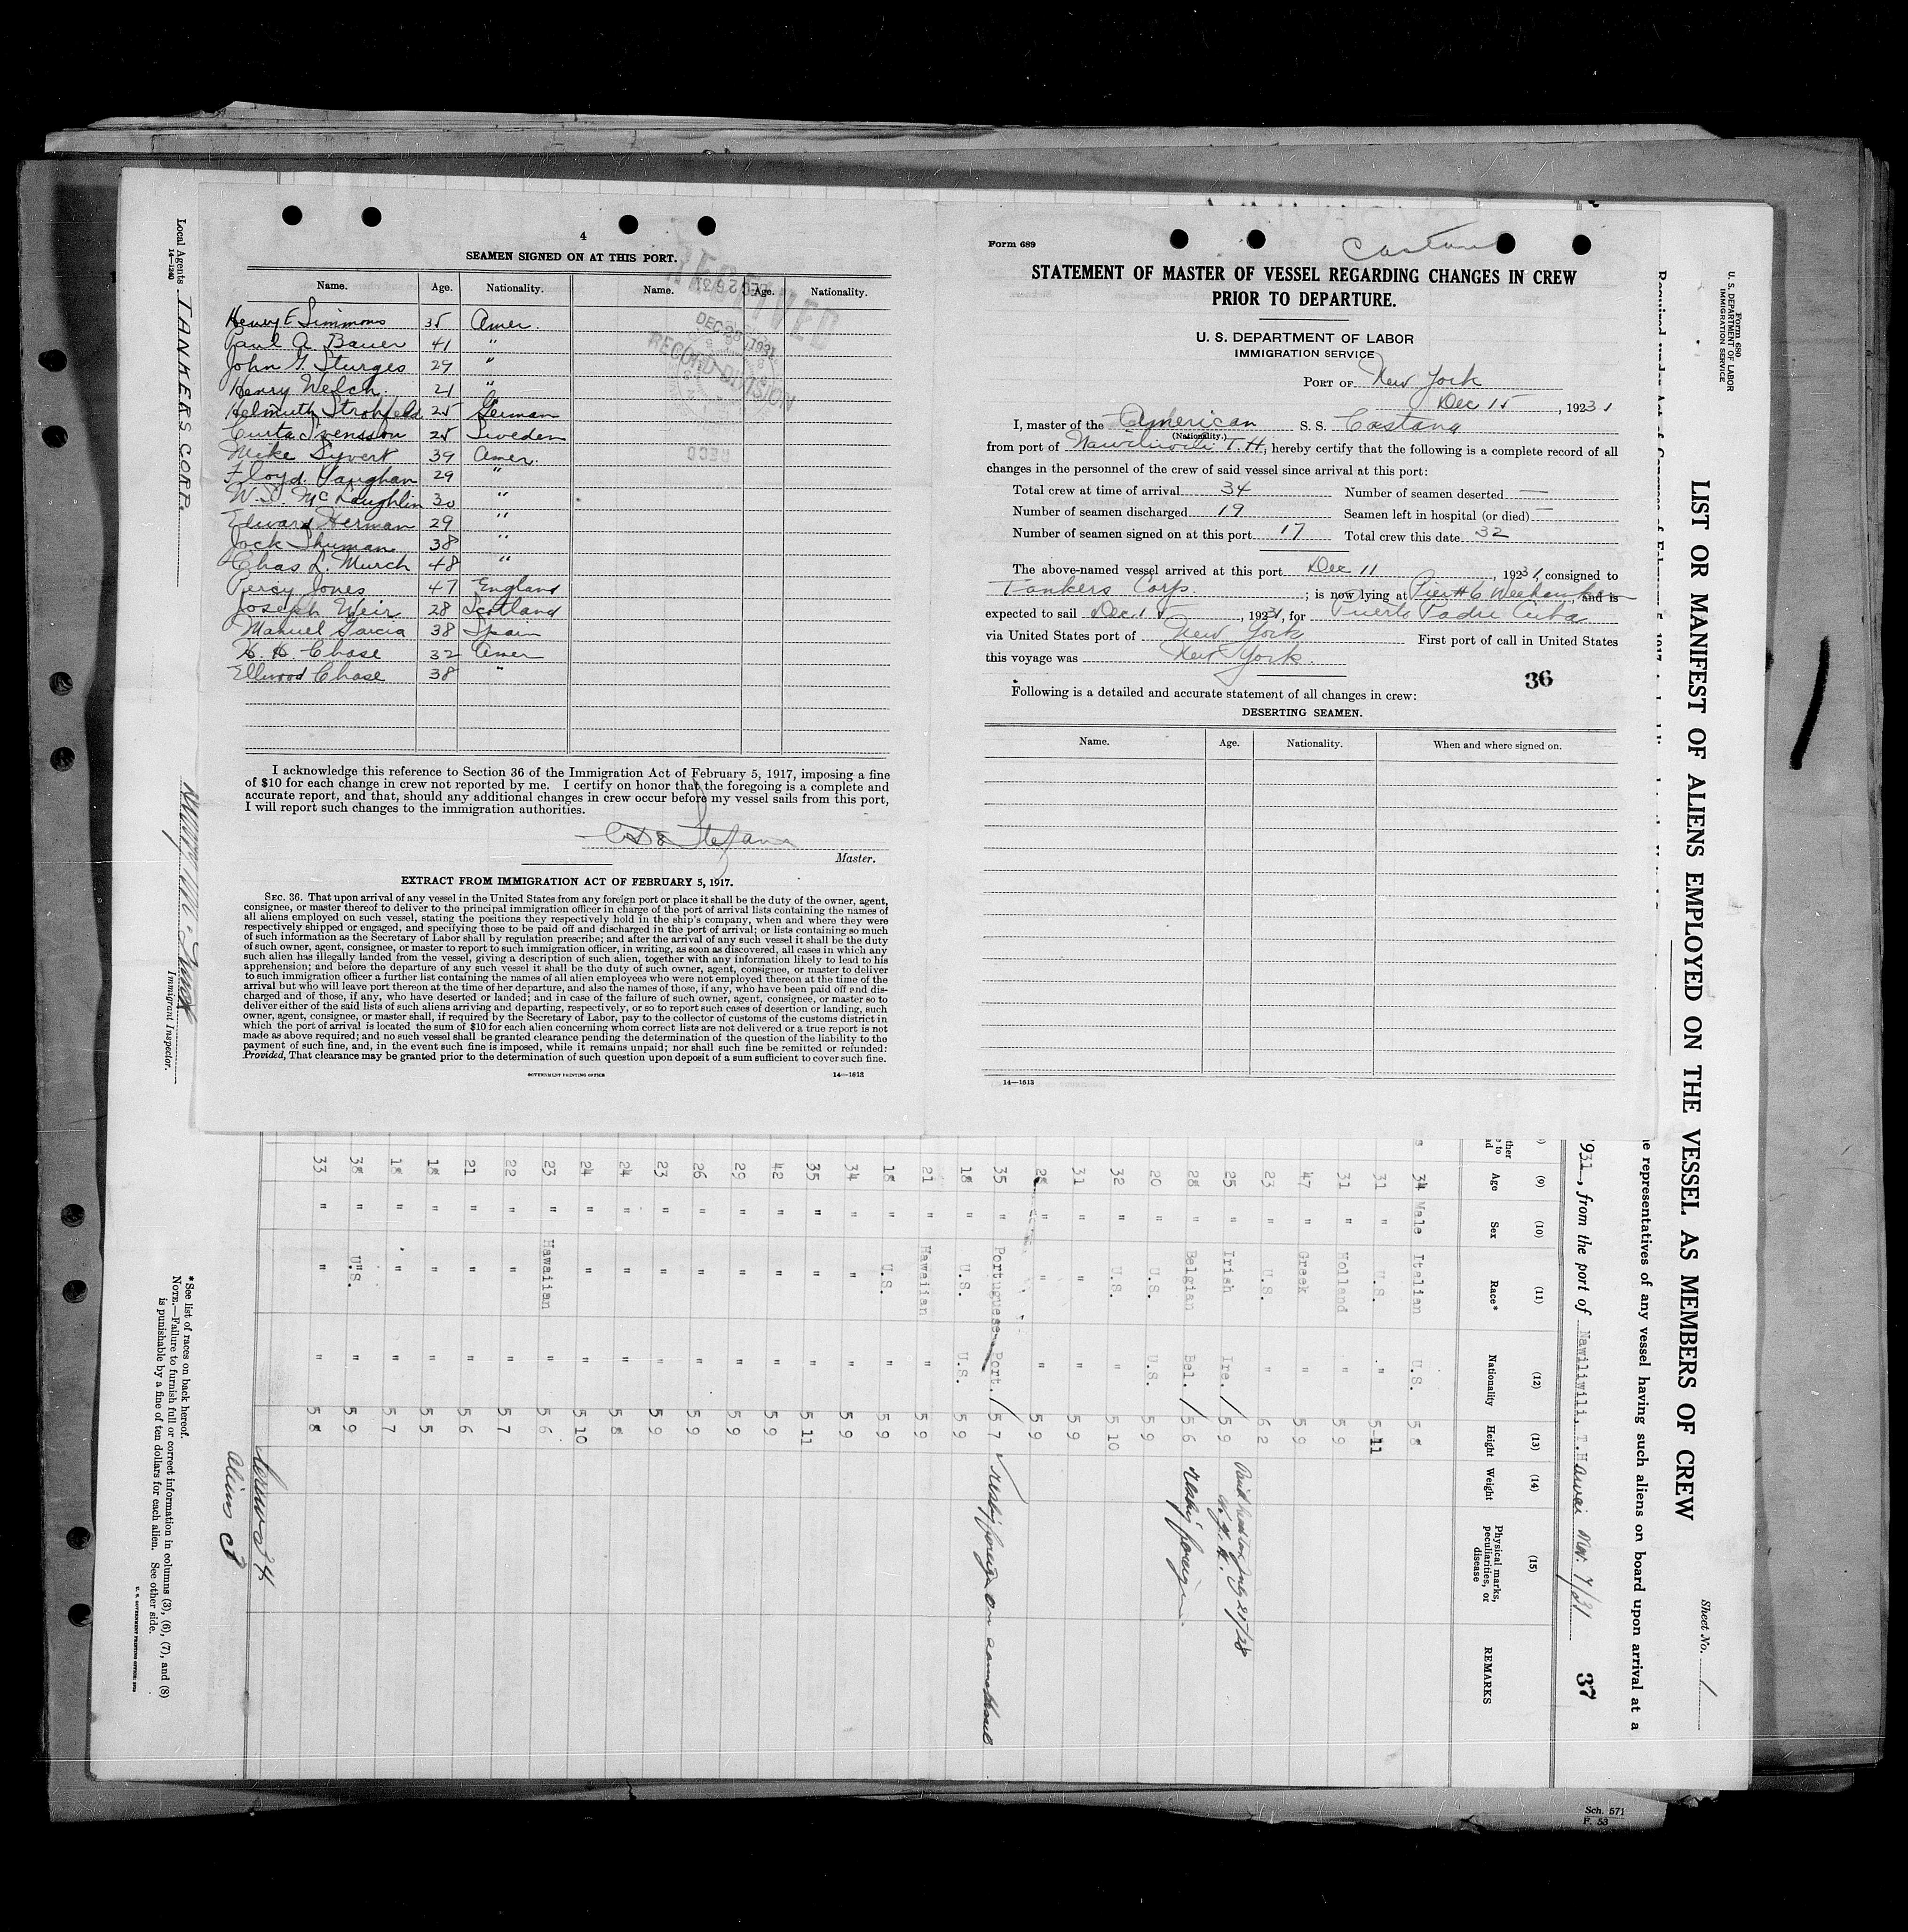 4
SEAMEN SIGNED ON AT THIS PORT.
Name. Age. Nationality. Name. Age. Nationality.
Henry E Simmons 35 Amer.
Paul A Bauer 41 "
John G. Sturges 29 "
Henry Welch 21 "
Helmuth Strohfeld 25 German
Curta Svensson 25 Sweden
Mike Syvert 39 Amer.
Floyd Vaughan 29 "
W. S. McLaughlin 30 "
Edward Herman 29 "
Jack Shuman 38 "
Chas L. Murch 48 "
Percy Jones 47 England
Joseph Weir 28 Scotland
Manuel Garcia 38 Spain
H. H. Chase 32 Amer
Ellwood Chase 38 "
RECEIVED
DEC 28 1931
RECORD DIVISION
I acknowledge this reference to Section 36 of the Immigration Act of February 5, 1917, imposing a fine
of $10 for each change in crew not reported by me. I certify on honor that the foregoing is a complete and
accurate report, and that, should any additional changes in crew occur before my vessel sails from this port,
I will report such changes to the immigration authorities.
Master.
EXTRACT FROM IMMIGRATION ACT OF FEBRUARY 5, 1917.
SEC. 36. That upon arrival of any vessel in the United States from any foreign port or place it shall be the duty of the owner, agent,
consignee, or master thereof to deliver to the principal immigration officer in charge of the port of arrival lists containing the names of
all aliens employed on such vessel, stating the positions they respectively hold in the ship's company, when and where they were
respectively shipped or engaged, and specifying those to be paid off and discharged in the port of arrival; or lists containing so much
of such information as the Secretary of Labor shall by regulation prescribe; and after the arrival of any such vessel it shall be the duty
of such owner, agent, consignee, or master to report to such immigration officer, in writing, as soon as discovered, all cases in which any
such alien has illegally landed from the vessel, giving a description of such alien, together with any information likely to lead to his
apprehension; and before the departure of any such vessel it shall be the duty of such owner, agent, consignee, or master to deliver
to such immigration officer a further list containing the names of all alien employees who were not employed thereon at the time of the
arrival but who will leave port thereon at the time of her departure, and also the names of those, if any, who have been paid off and dis-
charged and of those, if any, who have deserted or landed; and in case of the failure of such owner, agent, consignee, or master so to
deliver either of the said lists of such aliens arriving and departing, respectively, or so to report such cases of desertion or landing, such
owner, agent, consignee, or master shall, if required by the Secretary of Labor, pay to the collector of customs of the customs district in
which the port of arrival is located the sum of $10 for each alien concerning whom correct lists are not delivered or a true report is not
made as above required; and no such vessel shall be granted clearance pending the determination of the question of the liability to the
payment of such fine, and, in the event such fine is imposed, while it remains unpaid; nor shall such fine be remitted or refunded:
Provided, That clearance may be granted prior to the determination of such question upon deposit of a sum sufficient to cover such fine.
GOVERNMENT PRINTING OFFICE 14—1613
Form 689
Castana
STATEMENT OF MASTER OF VESSEL REGARDING CHANGES IN CREW
PRIOR TO DEPARTURE.
U. S. DEPARTMENT OF LABOR
IMMIGRATION SERVICE
PORT OF New York
Dec 15, 1931
I, master of the American S. S. Castana
(Nationality.)
from port of Nawiliwili T. H., hereby certify that the following is a complete record of all
changes in the personnel of the crew of said vessel since arrival at this port:
Total crew at time of arrival 34 Number of seamen deserted —
Number of seamen discharged 19 Seamen left in hospital (or died) —
Number of seamen signed on at this port 17 Total crew this date 32
The above-named vessel arrived at this port Dec 11, 1931, consigned to
Tankers Corp. ; is now lying at Pier #6 Weehawken, and is
expected to sail Dec 15, 1931, for Puerto Padre Cuba
via United States port of New York First port of call in United States
this voyage was New York.
36
Following is a detailed and accurate statement of all changes in crew:
DESERTING SEAMEN.
Name. Age. Nationality. When and where signed on.
14—1613
Form 680
U. S. DEPARTMENT OF LABOR
IMMIGRATION SERVICE
Sheet No. 1
LIST OR MANIFEST OF ALIENS EMPLOYED ON THE VESSEL AS MEMBERS OF CREW
representatives of any vessel having such aliens on board upon arrival at a
1931, from the port of Nawiliwili, T.Hawai Nov. 7/31
37
(9) (10) (11) (12) (13) (14) (15)
Age Sex Race* Nationality Height Weight Physical marks, peculiarities, or disease REMARKS
34 Male Italian U.S. 5 8
31 " U.S. " 5-11
31 " Holland " 5 9
47 " Greek " 5 9
23 " U.S. " 6 2
25 " Irish Ire. / 5 9
28 " Belgian Bel. / 5 6 reship foreign
20 " U.S. U.S. 5 9
32 " U.S. " 5 10
31 " " " 5 9
28 " " " 5 9
35 " Portuguese Port. / 5 7 reship foreign on same vessel
18 " U.S. U.S. 5 9
21 " Hawaiian " 5 9
18 " U.S. " 5 9
34 " " " 5 9
35 " " " 5 11
42 " " " 5 9
29 " " " 5 9
26 " " " 5 9
23 " " " 5 9
24 " " " 5 8
24 " " " 5 10
23 " Hawaiian " 5 6
22 " " " 5 7
21 " " " 5 6
18 " " " 5 5
18 " " " 5 7
38 " U.S. " 5 9
33 " " " 5 8
Crew 34
Aliens 3
*See list of races on back hereof.
NOTE.—Failure to furnish full or correct information in columns (3), (6), (7), and (8)
is punishable by a fine of ten dollars for each alien. See other side.
U. S. GOVERNMENT PRINTING OFFICE
Local Agents TANKERS CORP.
14—1240
Immigrant Inspector.
Sch. 571
P. 53